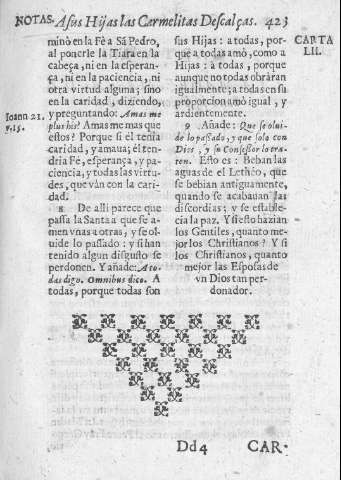 NOTAS. A sus Hijas las Carmelitas Descalças. 423
minò en la Fè a Sã Pedro,
al ponerle la Tiara en la
cabeça, ni en la esperan-
ça, ni en la paciencia, ni
otra virtud alguna; sino
en la caridad, diziendo,
y preguntando: Amas me
plus his? Amas me mas que
estos? Porque si èl tenia
caridad, y amaua; èl ten-
dria Fè, esperança, y pa-
ciencia, y todas las virtu-
des, que vàn con la cari-
dad.
Ioann 21.
v. 15.
8 De alli parece que
passa la Santa a que se a-
men vnas a otras, y se ol-
uide lo passado: y si han
tenido algun disgusto se
perdonen. Y añade: A to-
das digo. Omnibus dico. A
todas, porque todas son
sus Hijas: a todas, por-
que a todas amò, como a
Hijas: a todas, porque
aunque no todas obràran
igualmente; a todas en su
proporcion amò igual, y
ardientemente.
9 Añade: Que se olui-
de lo passado, y que solo con
Dios, y su Confessor lo tra-
ten. Esto es: Beban las
aguas de el Lethèo, que
se bebian antiguamente,
quando se acabauan las
discordias; y se estable-
cia la paz. Y si esto hazian
los Gentiles, quanto me-
jor los Christianos? Y si
los Christianos, quanto
mejor las Esposas de
vn Dios tan per-
donador.
CARTA
LII.
Dd4 CAR-